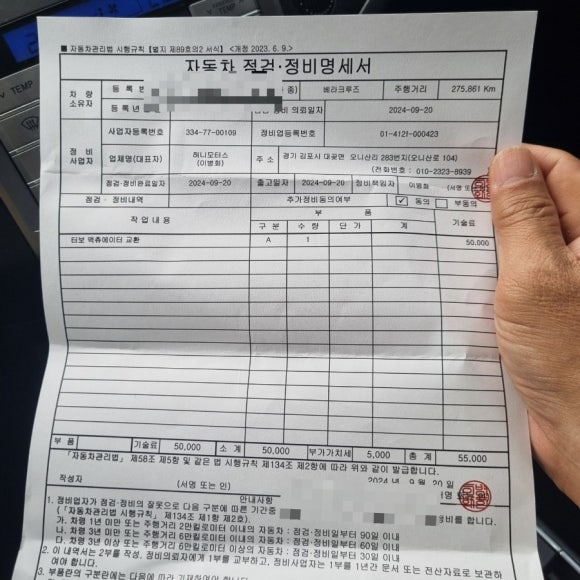 ■ 자동차관리법 시행규칙 [별지 제89호의2 서식] <개정 2023. 6. 9.>
자동차 점검·정비명세서
차량 소유자 등록번 종) 베라크루즈 주행거리 275,861 Km
등록년 정비 의뢰일자 2024-09-20
정비 사업자 사업자등록번호 334-77-00109 정비업등록번호 01-4121-000423
업체명(대표자) 허니모터스 (이병화) 주 소 경기 김포시 대곶면 오니산리 283번지(오니산로 104)
(전화번호 : 010-2323-8939
점검·정비완료일자 2024-09-20 출고일자 2024-09-20 정비책임자 이병화 (서명
점검 · 정비내역 추가정비동의여부 ✓ 동의 부동의
작 업 내 용 부 품 기술료
구 분 수 량 단 가 계
터보 액츄에이터 교환 A 1 50,000
부 품 기술료 50,000 소 계 50,000 부가가치세 5,000 총 계 55,000
「자동차관리법」 제58조 제5항 및 같은 법 시행규칙 제134조 제2항에 따라 위와 같이 발급합니다.
2024 년 9 월 20 일
작성자 (서명 또는 인) 서명
안내사항
1. 정비업자가 점검·정비의 잘못으로 다음 구분에 따른 기간중 정비를 합니다.
(「자동차관리법」 제134조 제1항 제2호).
가. 차령 1년 미만 또는 주행거리 2만킬로미터 이내의 자동차 : 점검·정비일부터 90일 이내
나. 차령 3년 미만 또는 주행거리 6만킬로미터 이내의 자동차 : 점검·정비일부터 60일 이내
다. 차령 3년 이상 또는 주행거리 6만킬로미터 이상의 자동차 : 점검·정비일부터 30일 이내
2. 이 내역서는 2부를 작성, 정비의뢰자에게 1부를 교부하고, 정비사업자는 1부를 1년간 문서 또는 전산자료로 보관하
여야 합니다.
3. 부품란의 구분란에는 다음에 따라 기재하여야 합니다.